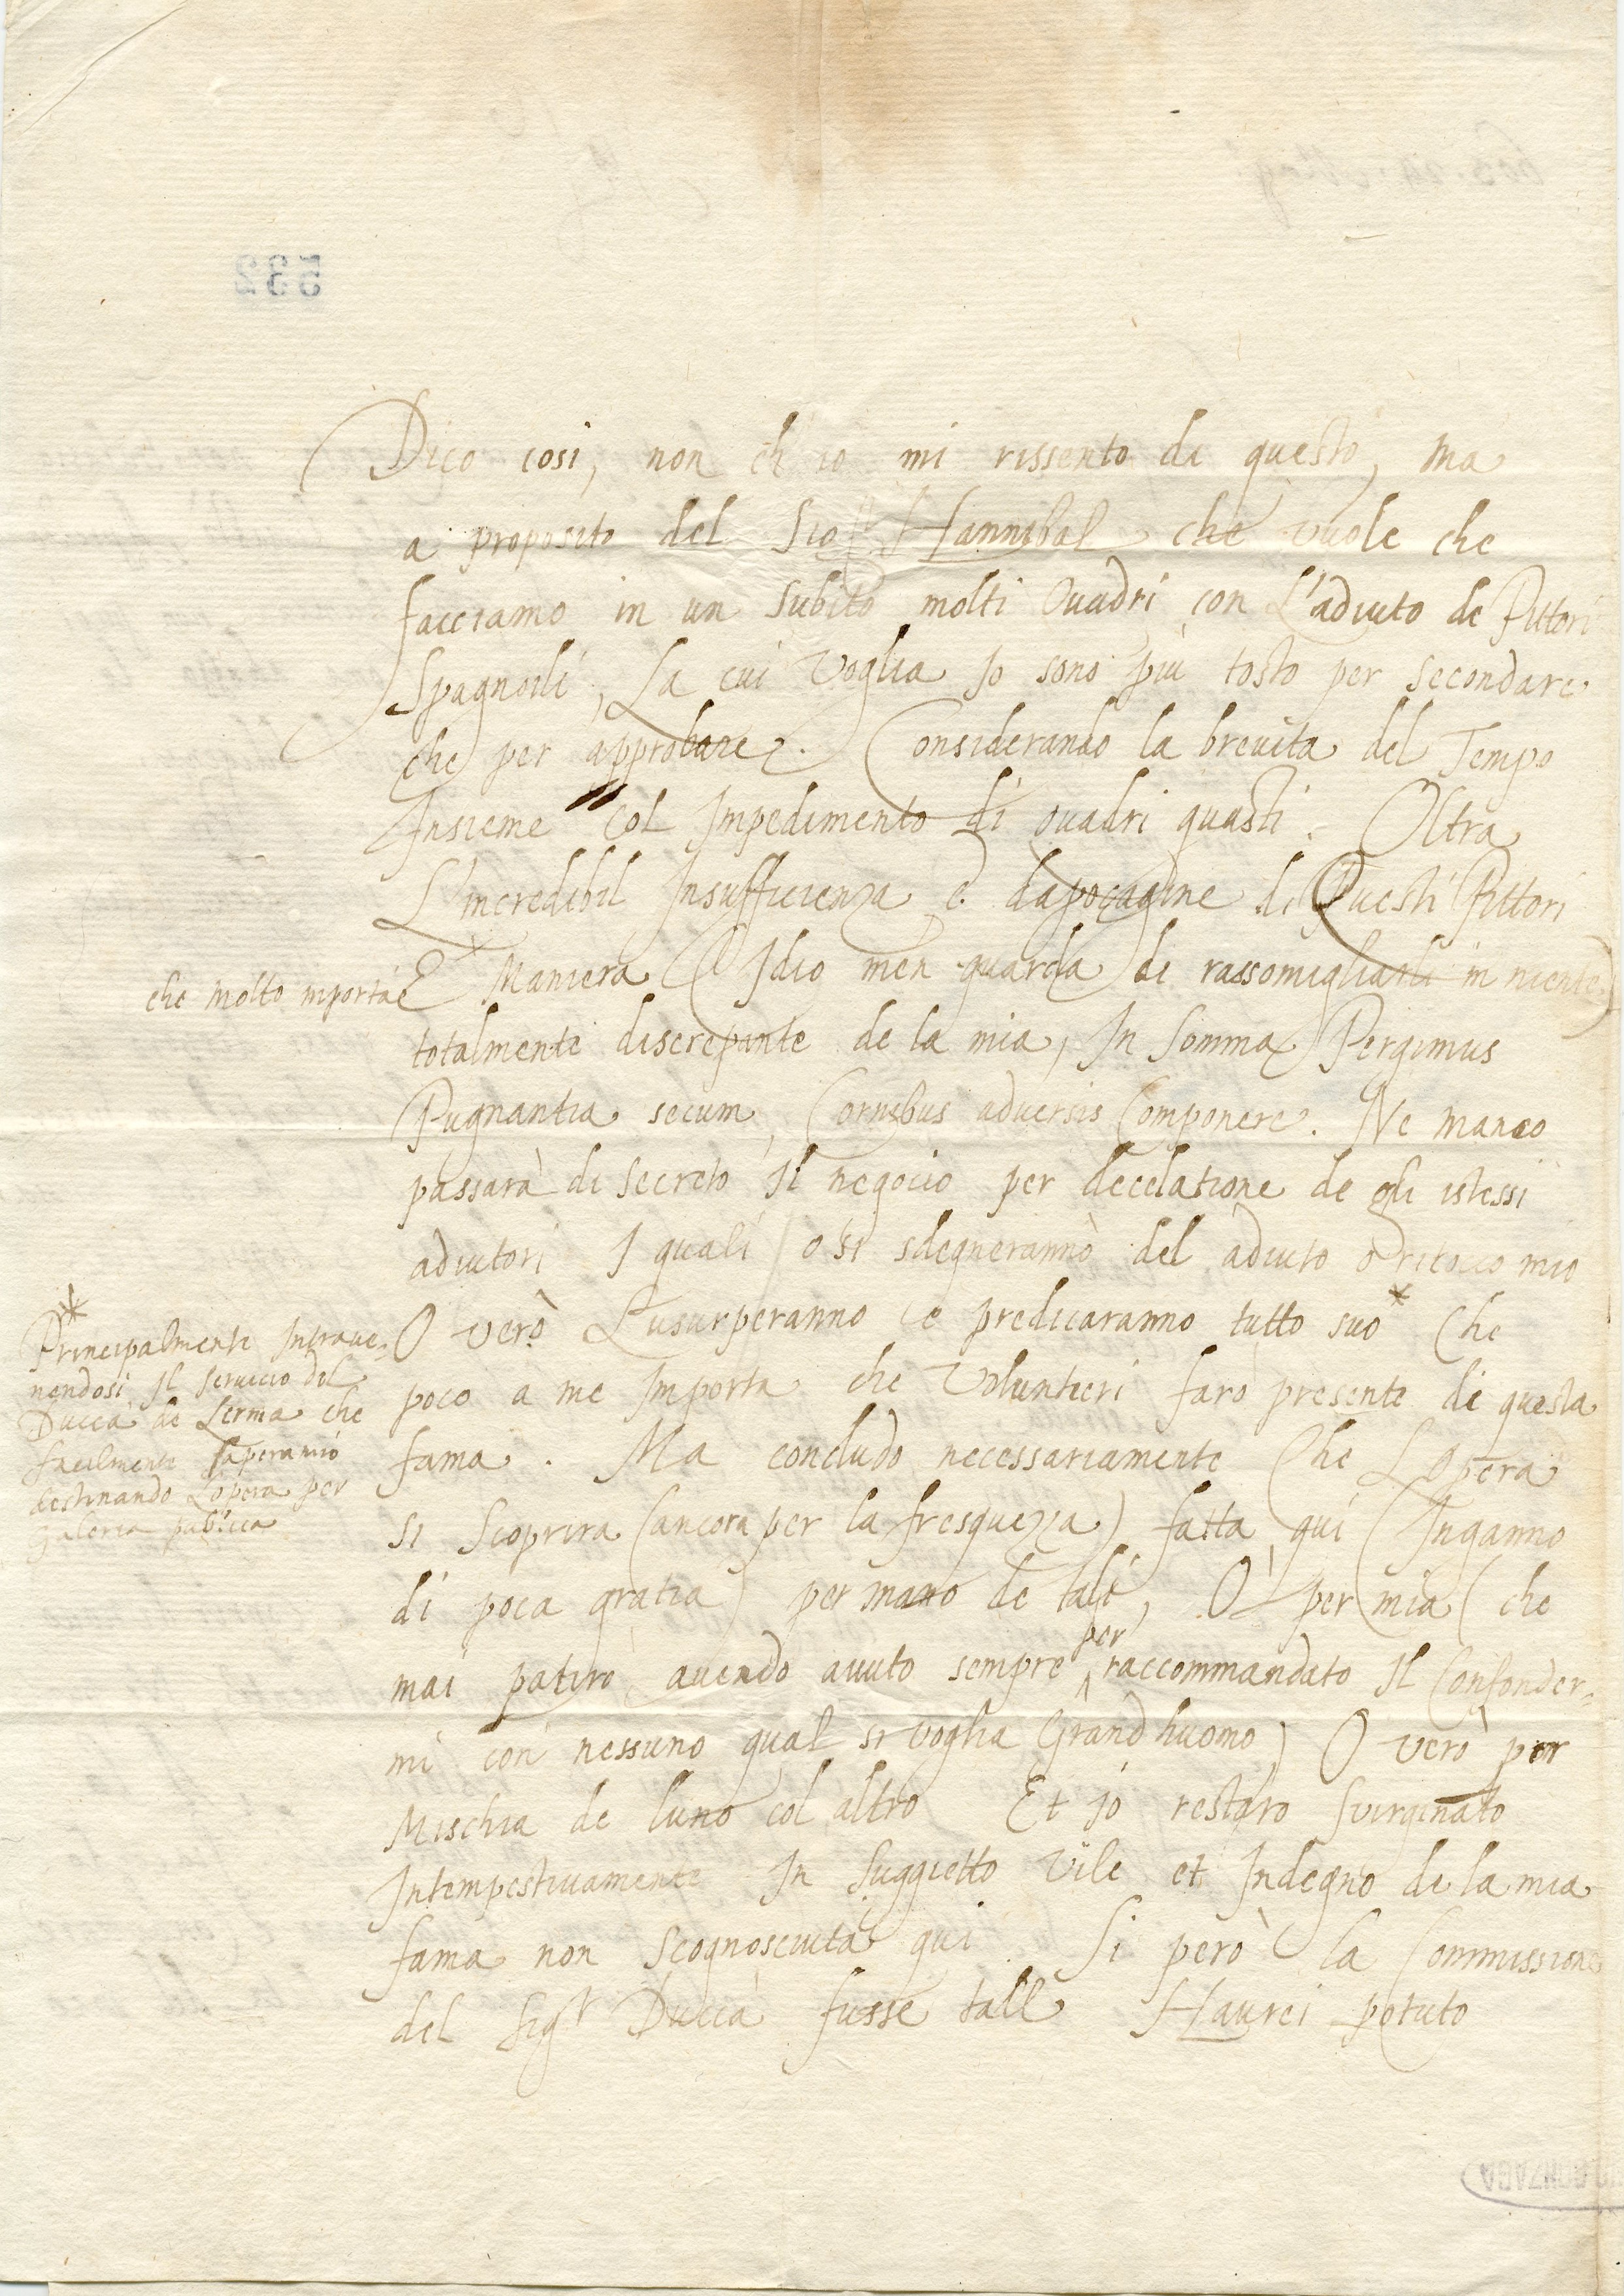 Dico così, non ch io mi rissento di questo, ma
a proposito del Sigr Hannibal che vuole che
facciamo in un subito molti Quadri con L'adiuto de Pittori
Spagnoili, La cui voglia Io sono più tosto per secondare
che per approbare. Considerando la brevita del Tempo
Insieme col Impedimento di quadri guasti. Oltra
L'incredibil Insufficienza e dapocagine di Questi Pittori
che molto mporta E Maniera (Idio men guarda di rassomigliarli in niente)
totalmente discrepante de la mia, In somma Pergimus
Pugnantia secum, Cornibus adversis Componere. Ne manco
passarà di secreto Il negocio per decelatione de gli istessi
adiutori I quali o si sdegnerannò del adiuto o ritocco mio
O verò L'usurperanno e predicaranno tutto suo* Che
*
Principalmente Intrave=
nendosi Il servicio del
Ducca de Lerma che
facilmente saperanno
destinando Lopera per
galeria publica
poco a me Importa che Voluntieri farò presente di questa
fama. Ma concludo necessariamente Che Lopera
si scoprira (ancora per la fresquezza) fatta qui (Inganno
di poca gratia) per mano de tali, O per mia (che
mai patirò avendo avuto sempre per raccommandato Il Confonder=
mi con nessuno qual si voglia Grand huomo) O verò per
Mischia de luno col altro Et Io restaro svirginato
Intempestivamente In suggietto Vile et Indegno de la mia
fama non scognosciuta qui. Si però la Commissione
del Sigr Ducca fusse tale Haurei potuto
532
GONZAGA